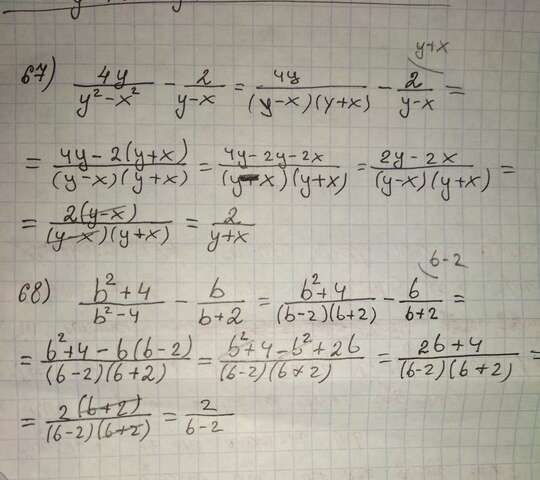 67) 4y/(y² - x²) - 2/(y-x) = 4y/((y-x)(y+x)) - 2/(y-x) y+x =
= (4y - 2(y+x))/((y-x)(y+x)) = (4y-2y-2x)/((y-x)(y+x)) = (2y-2x)/((y-x)(y+x)) =
= 2(y-x)/((y-x)(y+x)) = 2/(y+x)
68) (b²+4)/(b²-4) - b/(b+2) = (b²+4)/((b-2)(b+2)) - b/(b+2) b-2 =
= (b²+4-b(b-2))/((b-2)(b+2)) = (b²+4-b²+2b)/((b-2)(b+2)) = (2b+4)/((b-2)(b+2)) =
= 2(b+2)/((b-2)(b+2)) = 2/(b-2)